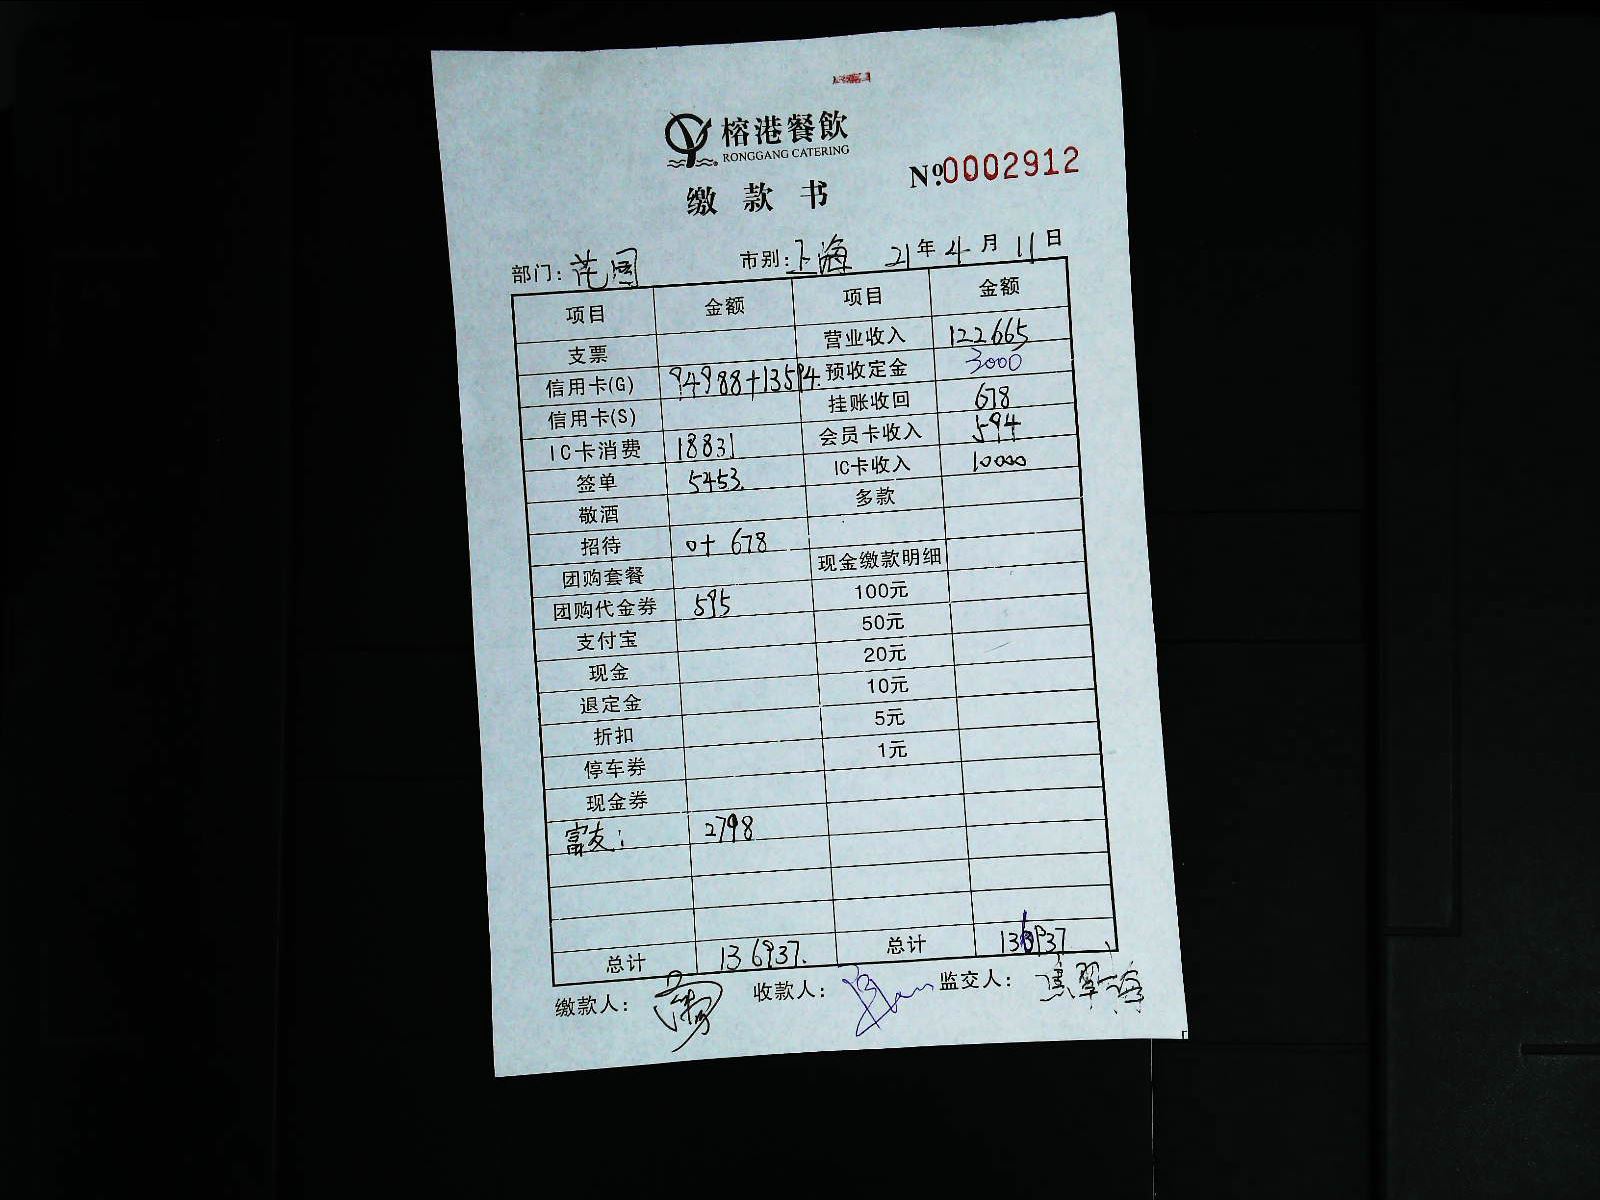 榕港餐飲
RONGGANG CATERING
缴款书
№0002912
部门: 花园 市别: 上海 21年4月11日
项目 金额 项目 金额
支票 营业收入 122665
信用卡(G) 94988+13594. 预收定金 3000
信用卡(S) 挂账收回 678
IC卡消费 18831 会员卡收入 594
签单 5453. IC卡收入 10000
敬酒 多款
招待 0+ 678
团购套餐 现金缴款明细
团购代金券 595 100元
支付宝 50元
现金 20元
退定金 10元
折扣 5元
停车券 1元
现金券
富友: 2798
总计 136937. 总计 136937
缴款人: 收款人: 监交人: